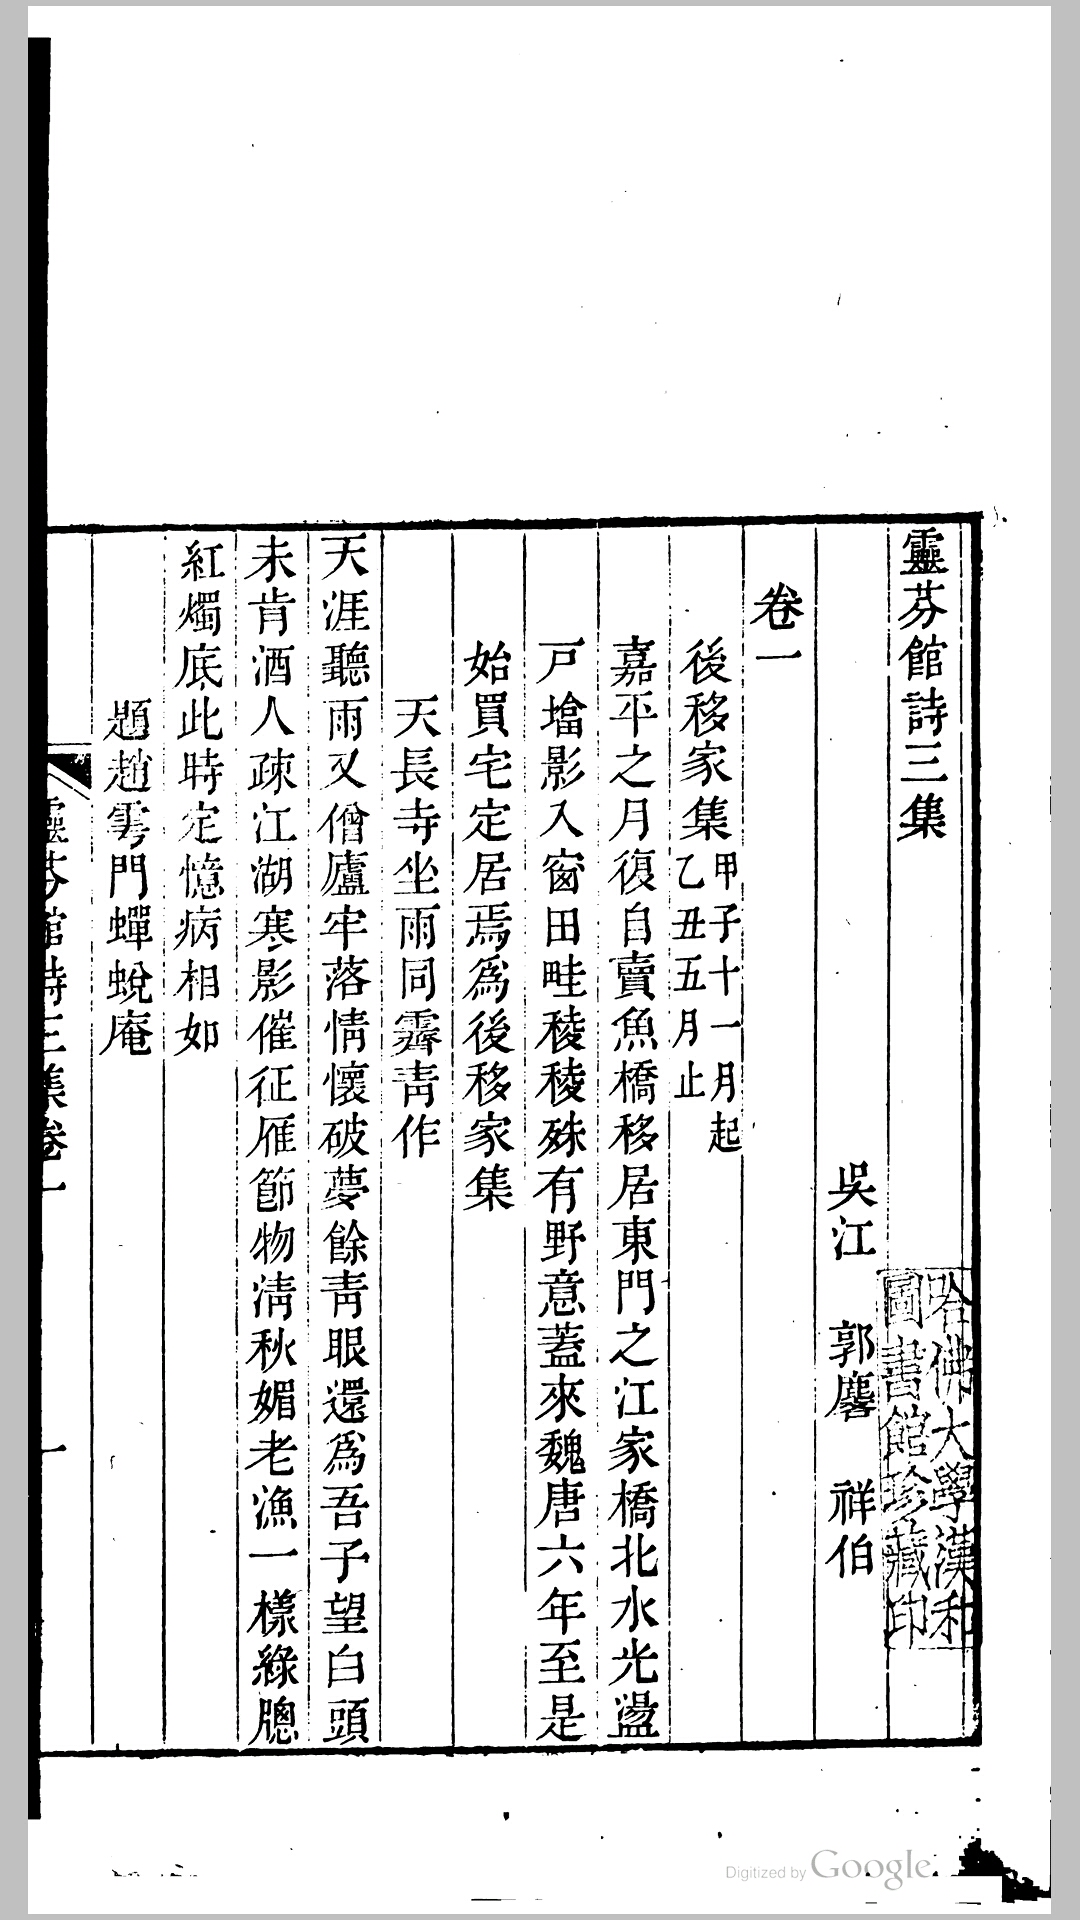 靈芬館詩三集
吳江 郭麐 祥伯
卷一
後移家集 甲子十一月起
乙丑五月止
嘉平之月復自賣魚橋移居東門之江家橋北水光盪
戸墖影入窗田畦稜稜殊有野意蓋來魏唐六年至是
始買宅定居焉爲後移家集
天長寺坐雨同霽青作
天涯聽雨又僧廬牢落情懷破夢餘青眼還爲吾子望白頭
未肯酒人疎江湖寒影催征雁節物淸秋媚老漁一樣綠牕
紅燭底此時定憶病相如
題趙雩門蟬蛻庵
靈芬館詩三集卷一
一
哈佛大學漢和
圖書館珍藏印
Digitized by Google